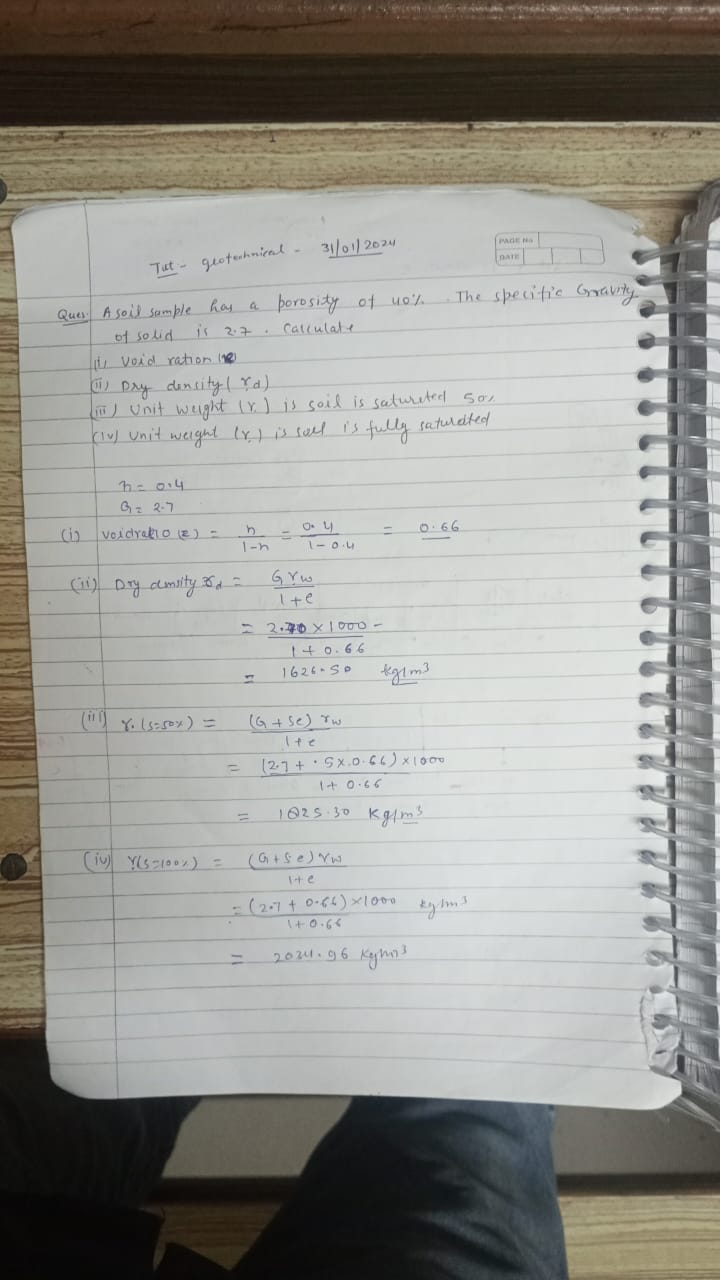 Tut - geotechnical - 31/01/2024
PAGE No
DATE
Ques. A soil sample has a porosity of 40%. The specific Gravity
of solid is 2.7. Calculate
(i) Void ration (e)
(ii) Dry density (γd)
(iii) Unit weight (γ) is soil is saturated 50%
(iv) Unit weight (γ) is soil is fully saturated
n = 0.4
G = 2.7
(i) void ratio (e) = n / 1-n = 0.4 / 1-0.4 = 0.66
(ii) Dry density γd = Gγw / 1+e
= 2.70 × 1000 / 1+0.66
= 1626.50 kg/m³
(iii) γ (s=50%) = (G + Se) γw / 1+e
= (2.7 + .5×0.66) × 1000 / 1+0.66
= 1825.30 Kg/m³
(iv) γ(s=100%) = (G+Se) γw / 1+e
= (2.7 + 0.66) × 1000 / 1+0.66 kg/m³
= 2034.96 Kg/m³